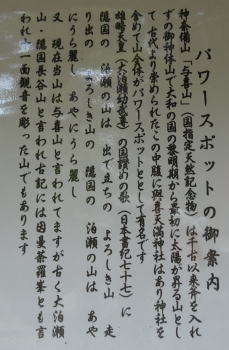 パワースポットの御案内
神奈備山「与喜山」(国指定天然記念物)は千古以来斧を入れ
ずの御神体山で大和の国の黎明期から最初に太陽が昇る山とし
て古代より崇められたこの中腹に與喜天満神社はあり神社を
含めて山全体がパワースポットとして有名です
雄略天皇(大泊瀬幼武尊)の国讃めの歌(日本書紀七十七)に
隠国の 泊瀬の山は 出で立ちの よろしき山 走
り出の よろしき山の 隠国の 泊瀬の山は あや
にうら麗し あやにうら麗し
又 現在当山は与喜山と言われてますが古く大泊瀬
山・隠国長谷山と言われ古記には因曼荼羅峯とも言
われ十一面観音を彫った山でもあります